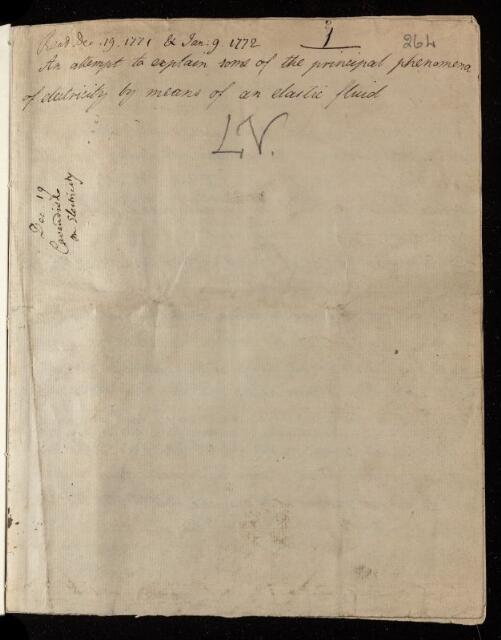 Read Dec. 19. 1771 & Jan: 9. 1772
1
264
An attempt to explain some of the principal phenomena
of electricity by means of an elastic fluid
LV.
Dec 19
Cavendish
on Electricity